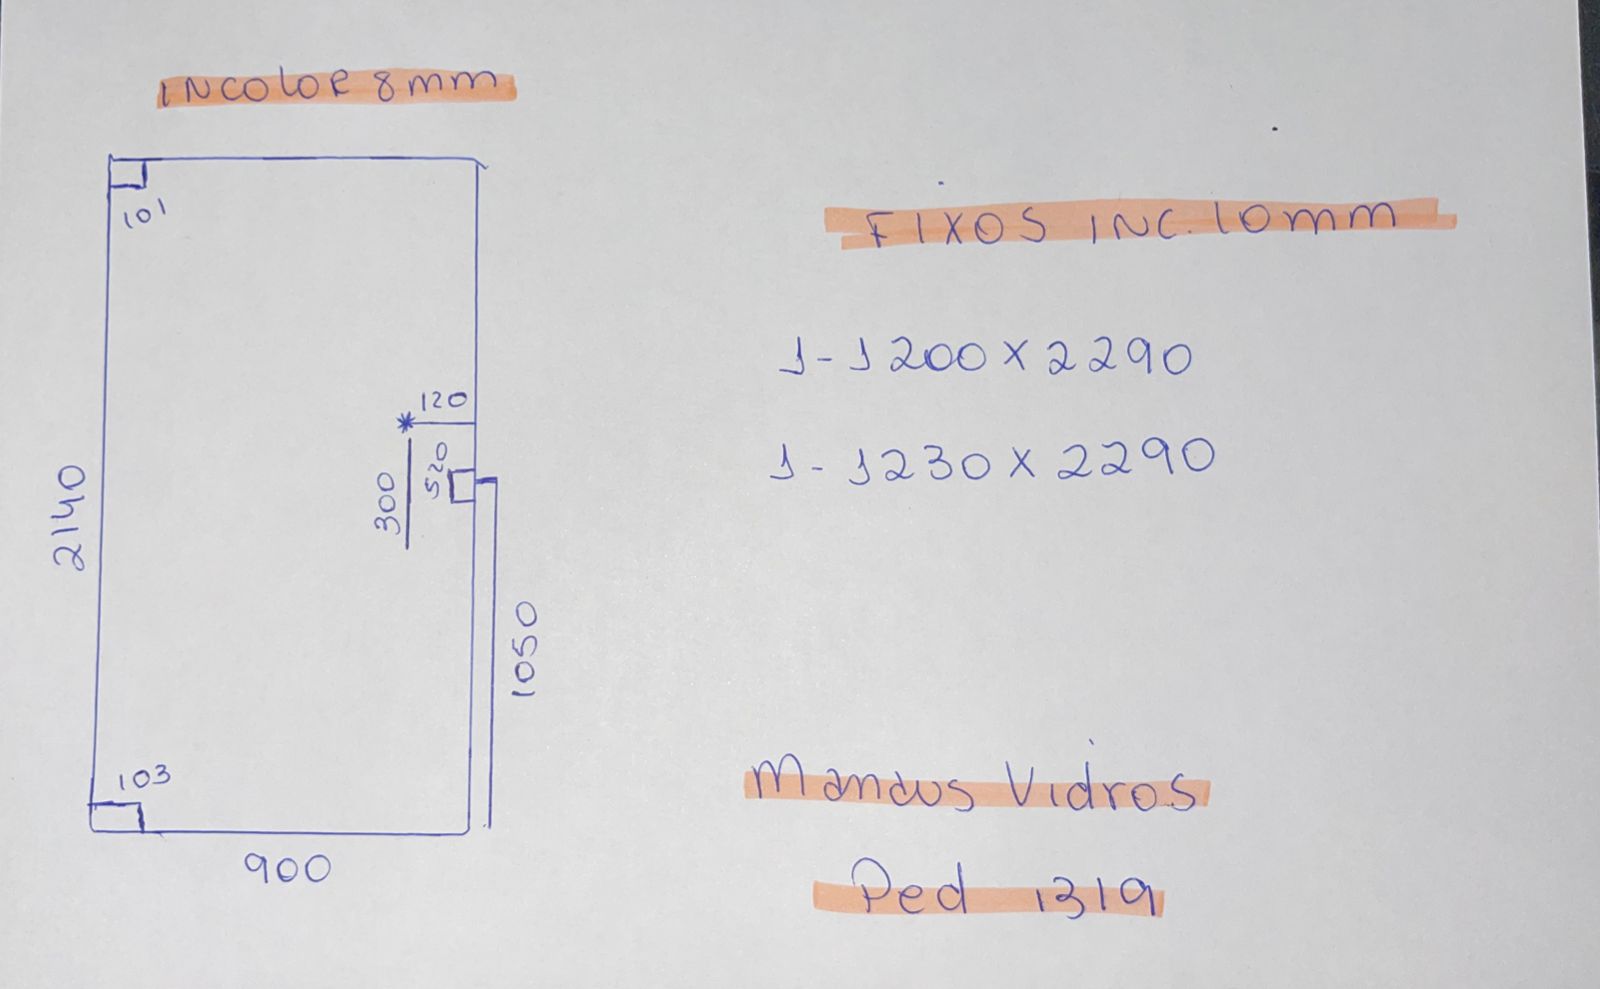 INCOLOR 8mm
101
120
520
300
2140
1050
103
900
FIXOS INC. 10mm
1-1200 X 2290
1-1230 X 2290
Manaus Vidros
Ped 1319